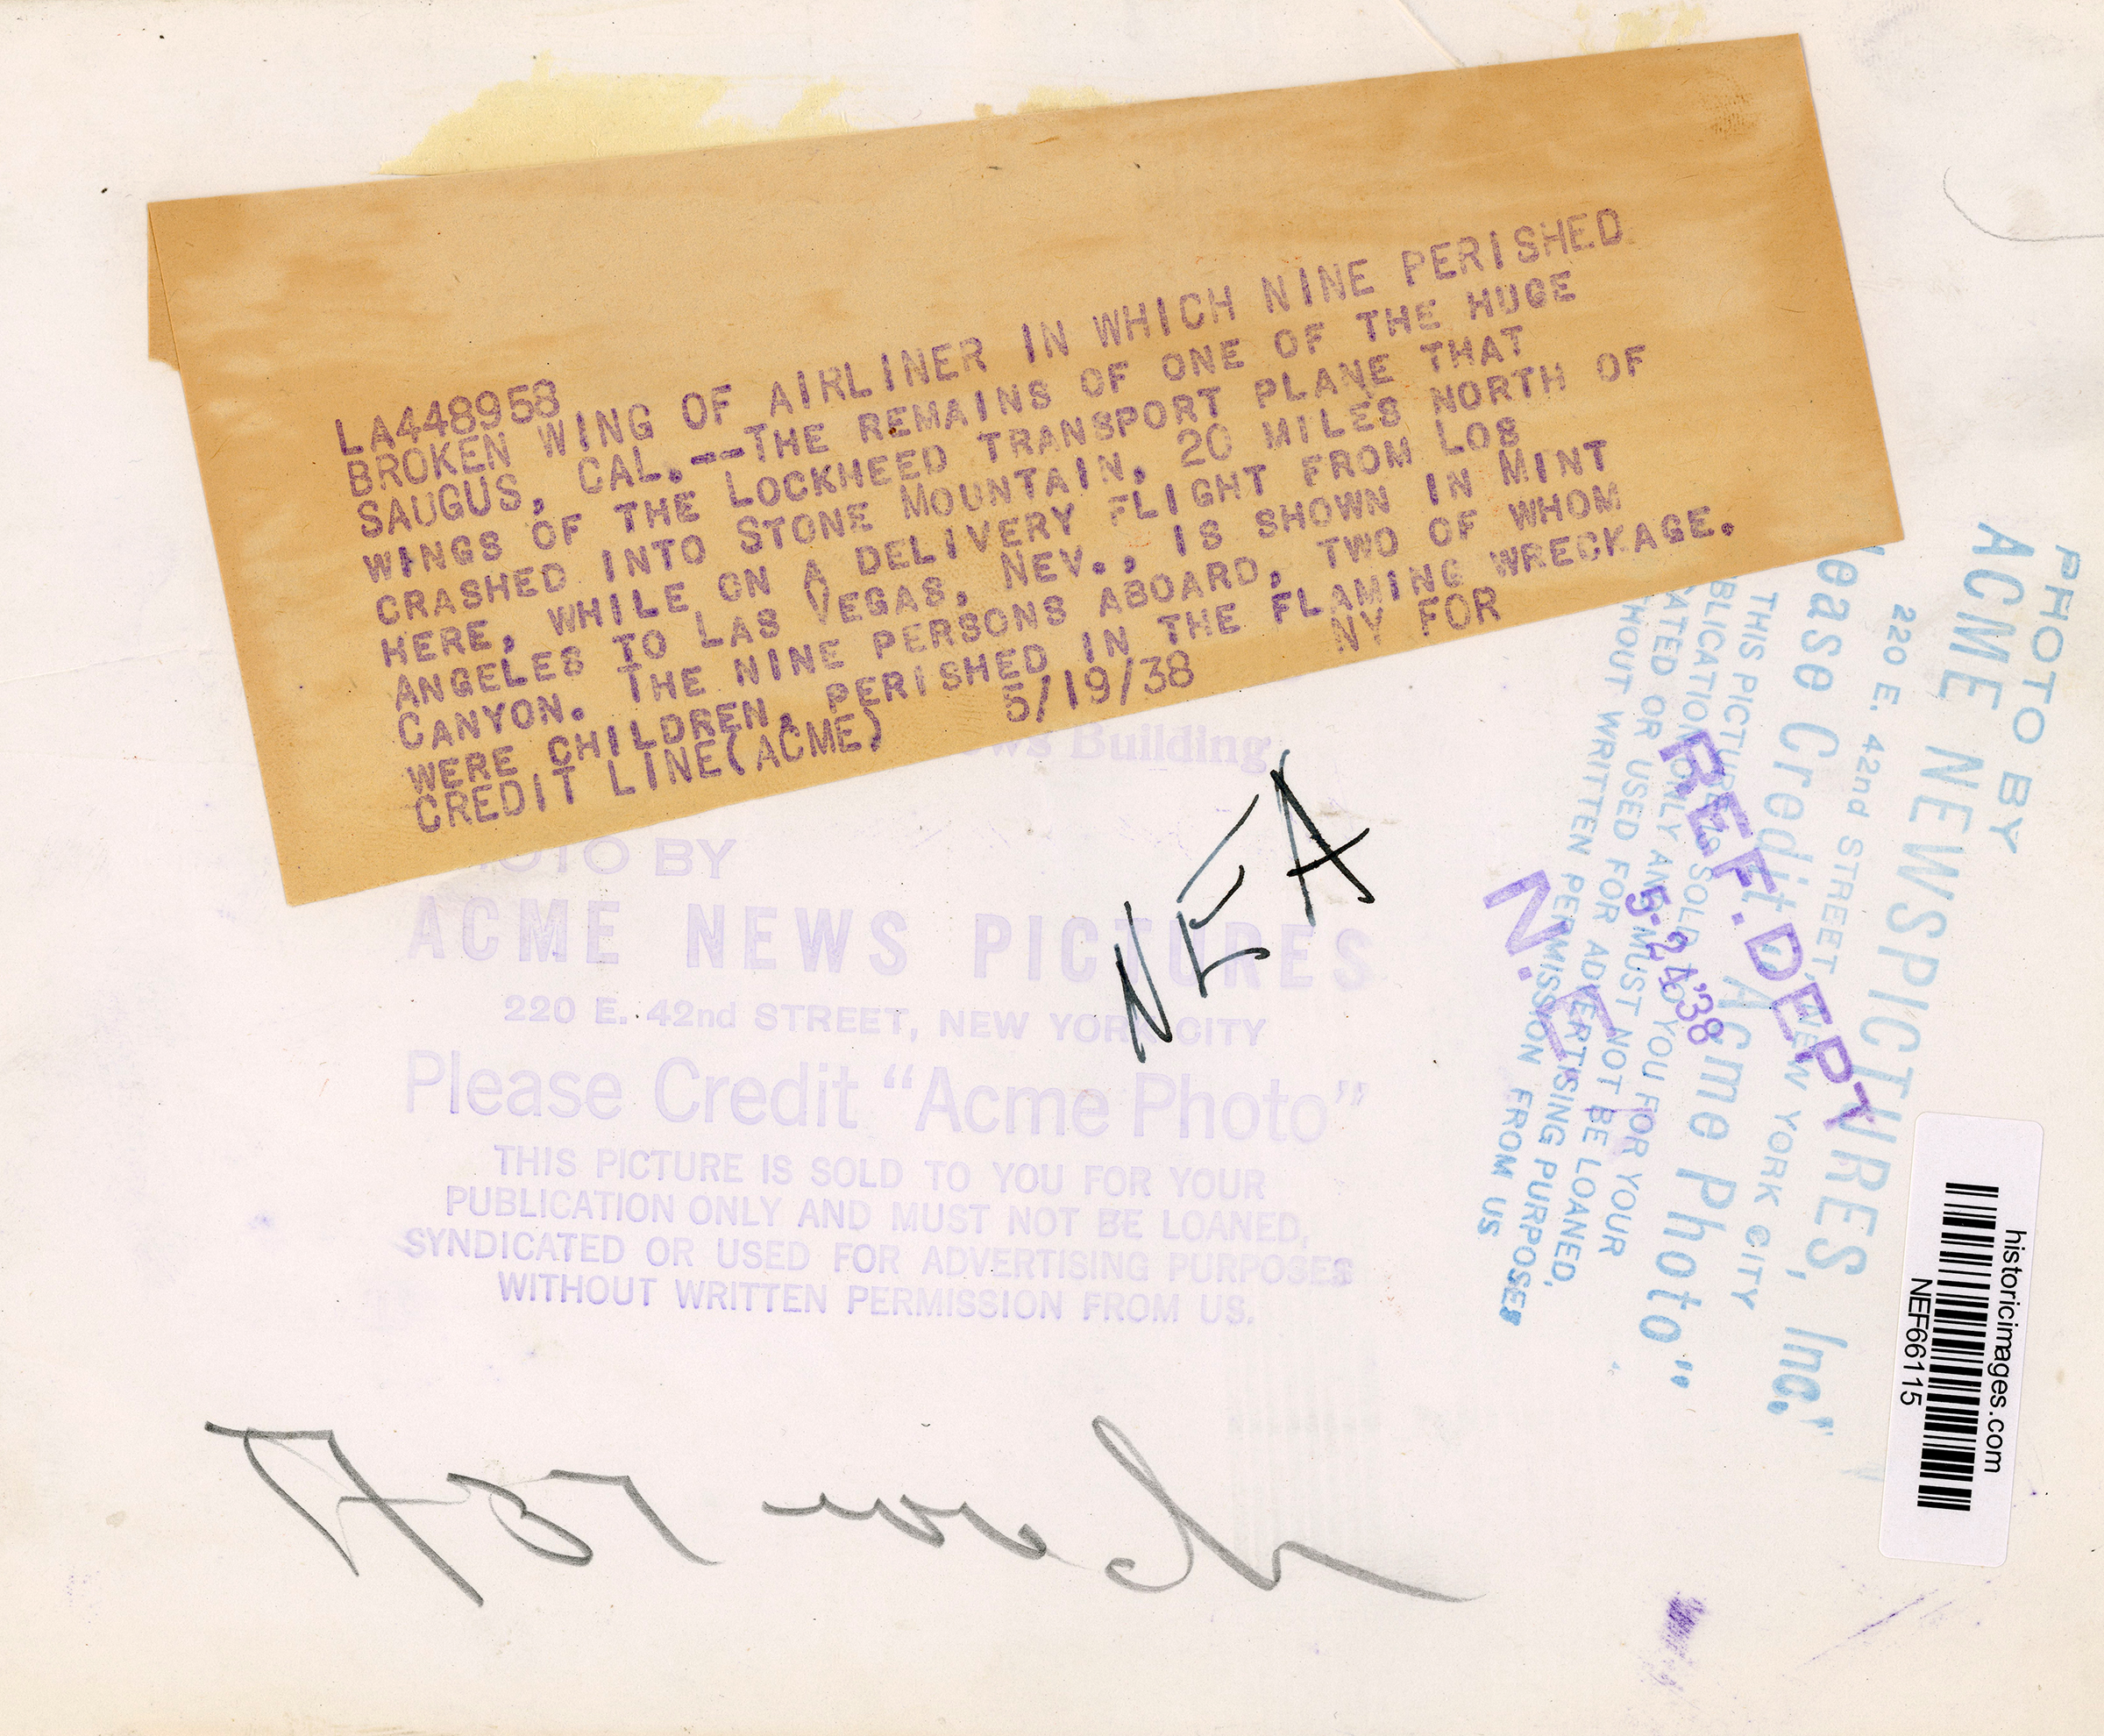 LA448958
BROKEN WING OF AIRLINER IN WHICH NINE PERISHED
SAUGUS, CAL.--THE REMAINS OF ONE OF THE HUGE
WINGS OF THE LOCKHEED TRANSPORT PLANE THAT
CRASHED INTO STONE MOUNTAIN, 20 MILES NORTH OF
HERE, WHILE ON A DELIVERY FLIGHT FROM LOS
ANGELES TO LAS VEGAS, NEV., IS SHOWN IN MINT
CANYON. THE NINE PERSONS ABOARD, TWO OF WHOM
WERE CHILDREN, PERISHED IN THE FLAMING WRECKAGE.
CREDIT LINE(ACME) 5/19/38 NY FOR
Building
OTO BY
ACME NEWS PICTURES
220 E. 42nd STREET, NEW YORK CITY
Please Credit "Acme Photo"
THIS PICTURE IS SOLD TO YOU FOR YOUR
PUBLICATION ONLY AND MUST NOT BE LOANED,
SYNDICATED OR USED FOR ADVERTISING PURPOSES
WITHOUT WRITTEN PERMISSION FROM US.
NEA
PHOTO BY
ACME NEWSPICTURES, Inc.
220 E. 42nd STREET, NEW YORK CITY
ease Credit "Acme Photo"
THIS PICTURE IS SOLD TO YOU FOR YOUR
BLICATION ONLY AND MUST NOT BE LOANED,
CATED OR USED FOR ADVERTISING PURPOSES
HOUT WRITTEN PERMISSION FROM US
REF. DEPT
5-21'38
N. E.
historicimages.com
NEF66115